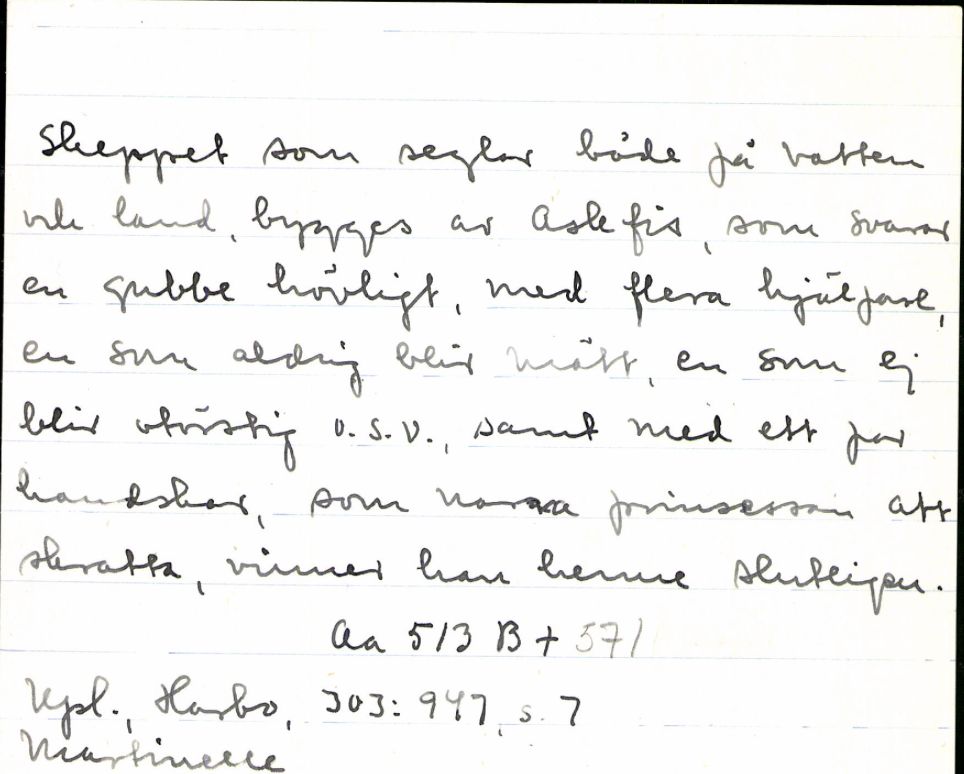 Skeppet som seglar både på vatten
och land, bygges av Askefis, som svarar
en gubbe hövligt, med flera hjälpare,
en som aldrig blir mätt, en som ej
blir otörstig o.s.v., samt med ett par
handskar, som narra prinsessan att
skratta, vinner han henne slutligen.
Aa 513 B + 571
Upl., Harbo, 303: 947, s. 7
Martinelle